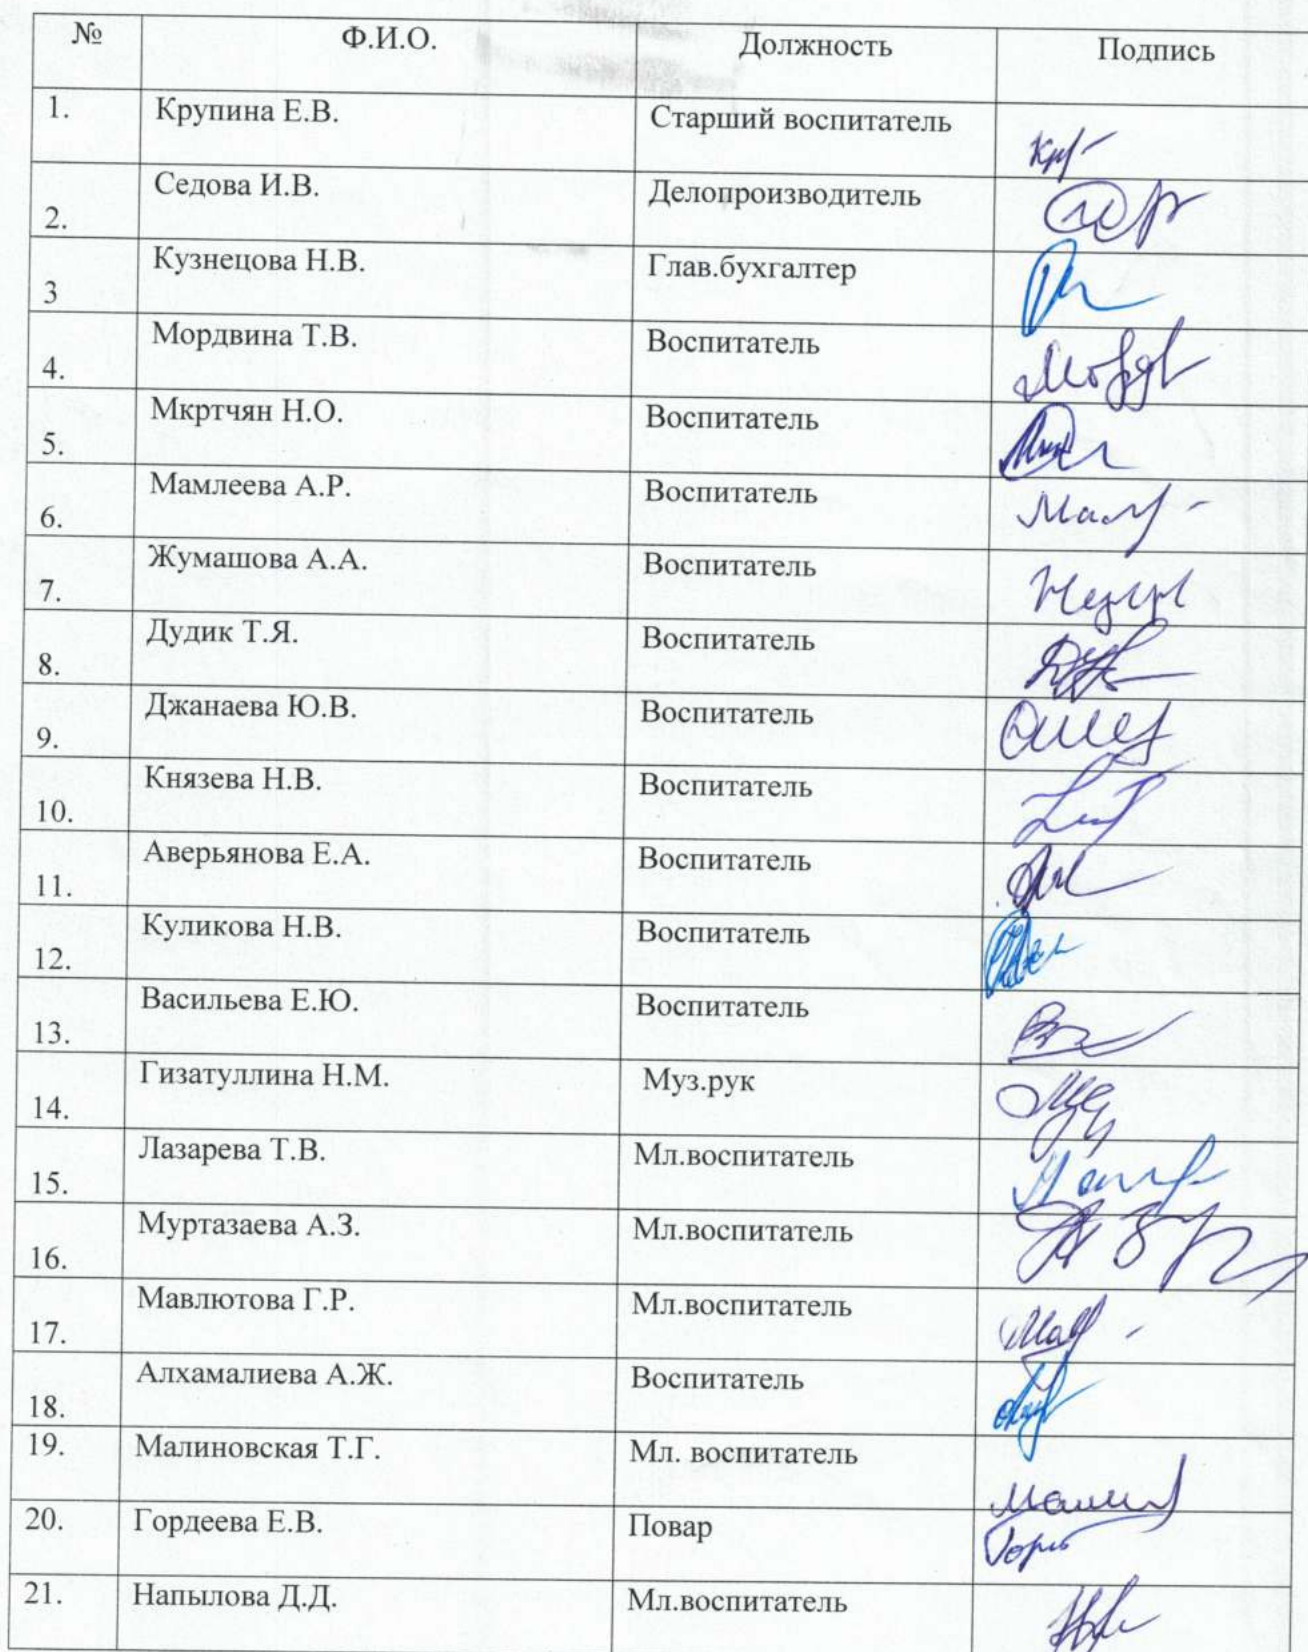 № Ф.И.О. Должность Подпись
1. Крупина Е.В. Старший воспитатель
2. Седова И.В. Делопроизводитель
3 Кузнецова Н.В. Глав.бухгалтер
4. Мордвина Т.В. Воспитатель
5. Мкртчян Н.О. Воспитатель
6. Мамлеева А.Р. Воспитатель
7. Жумашова А.А. Воспитатель
8. Дудик Т.Я. Воспитатель
9. Джанаева Ю.В. Воспитатель
10. Князева Н.В. Воспитатель
11. Аверьянова Е.А. Воспитатель
12. Куликова Н.В. Воспитатель
13. Васильева Е.Ю. Воспитатель
14. Гизатуллина Н.М. Муз.рук
15. Лазарева Т.В. Мл.воспитатель
16. Муртазаева А.З. Мл.воспитатель
17. Мавлютова Г.Р. Мл.воспитатель
18. Алхамалиева А.Ж. Воспитатель
19. Малиновская Т.Г. Мл. воспитатель
20. Гордеева Е.В. Повар
21. Напылова Д.Д. Мл.воспитатель